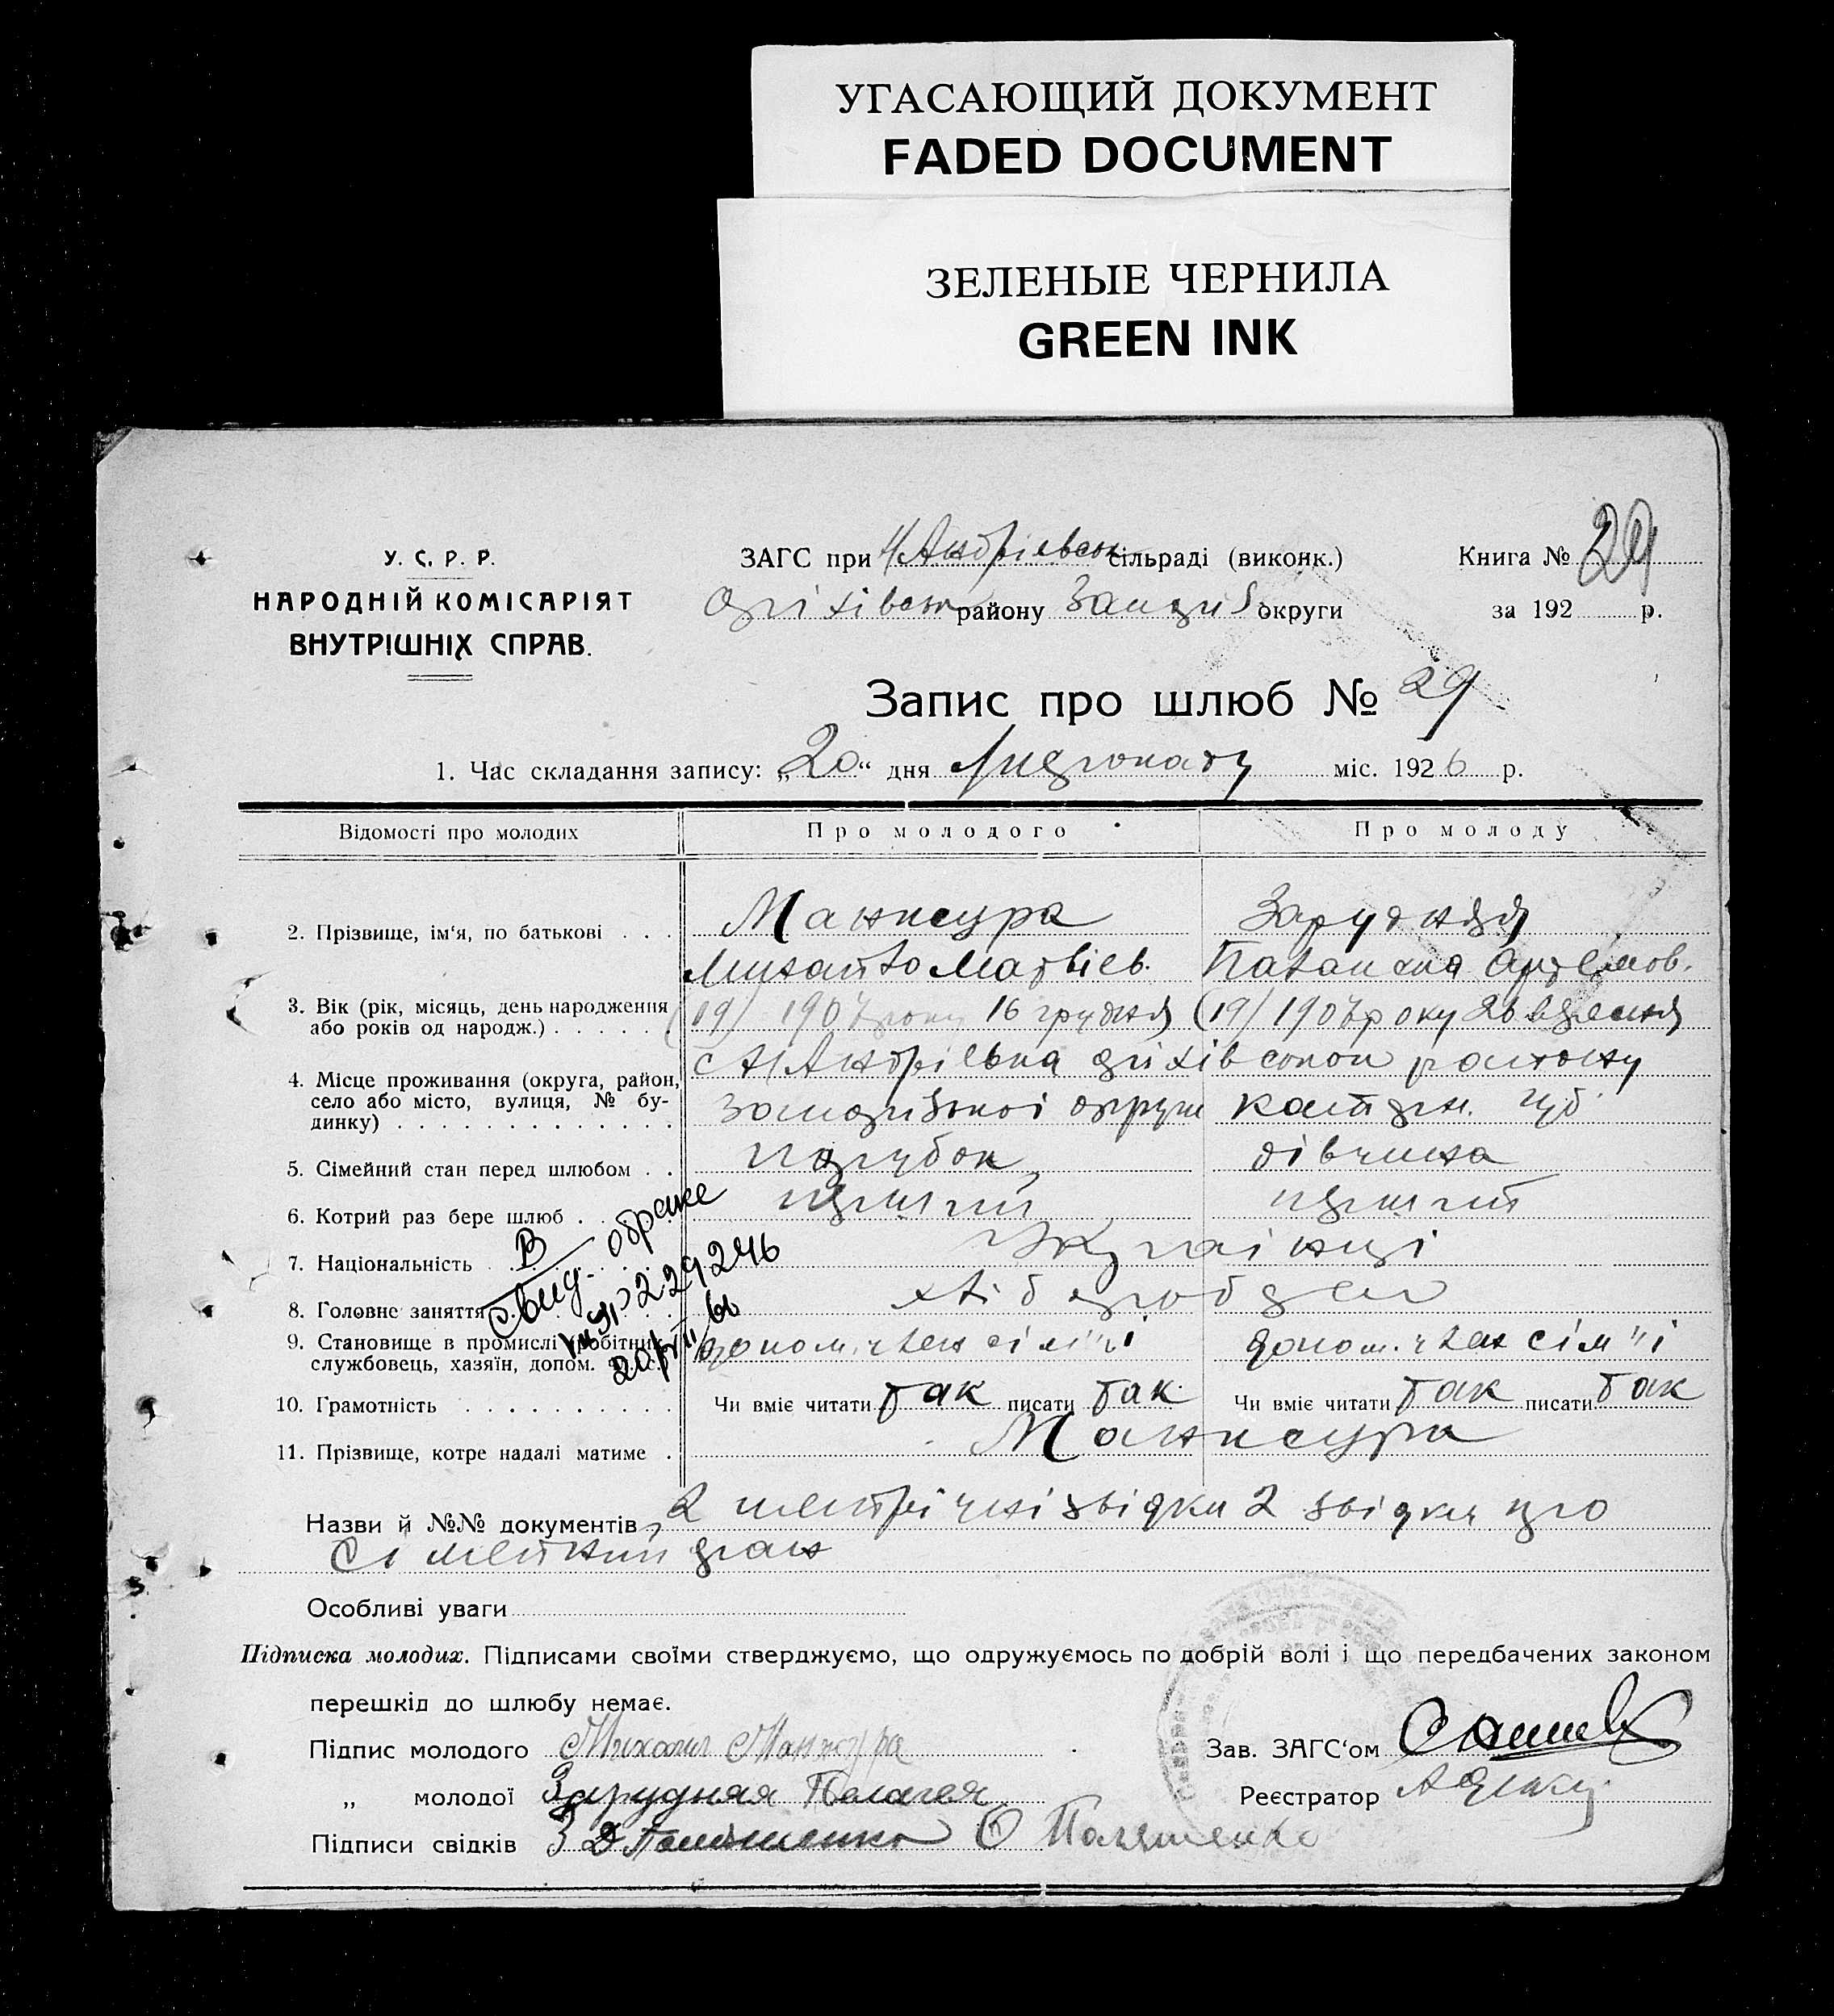 УГАСАЮЩИЙ ДОКУМЕНТ
FADED DOCUMENT
ЗЕЛЕНЫЕ ЧЕРНИЛА
GREEN INK
У. С. Р. Р.
НАРОДНІЙ КОМІСАРІЯТ
ВНУТРІШНІХ СПРАВ.
ЗАГС при Н Андрієвськ сільраді (виконк.)
Оріхівськ району Запоріз округи
Книга № 29
за 192 р.
Запис про шлюб № 29
1. Час складання запису: „20“ дня Листопаду міс. 1926 р.
Відомості про молодих Про молодого Про молоду
2. Прізвище, ім‘я, по батькові . . . Манжура Зарудняя
Михайло Матвієв. Палажка Артемов.
3. Вік (рік, місяць, день народження або років од народж.) . . . . . (19) 1907 року 16 грудня (19) 1907 року 26 вересня
4. Місце проживання (округа, район, село або місто, вулиця, № будинку) . . . . . . . . . . . . . с Н Андрієвка Оріхівского району
запорізької округи
5. Сімейний стан перед шлюбом . . парубок дівчина
6. Котрий раз бере шлюб . перший перший
7. Національність . . Українці
8. Головне заняття хлібороби
9. Становище в промислі (робітник, службовець, хазяїн, допом. допом. член сім"ї допом. член сім"ї
10. Грамотність . . . . . . . . . . Чи вміє читати так писати так Чи вміє читати так писати так
11. Прізвище, котре надалі матиме . Манжура
Назви й №№ документів 2 метричні звідки 2 звідки про
сімейний стан
Особливі уваги
Підписка молодих. Підписами своїми стверджуємо, що одружуємось по добрій волі і що передбачених законом
перешкід до шлюбу немає.
Підпис молодого Михаил Манжура
Зав. ЗАГС‘ом
„ молодої Зарудняя Пелагея
Реєстратор
Підписи свідків